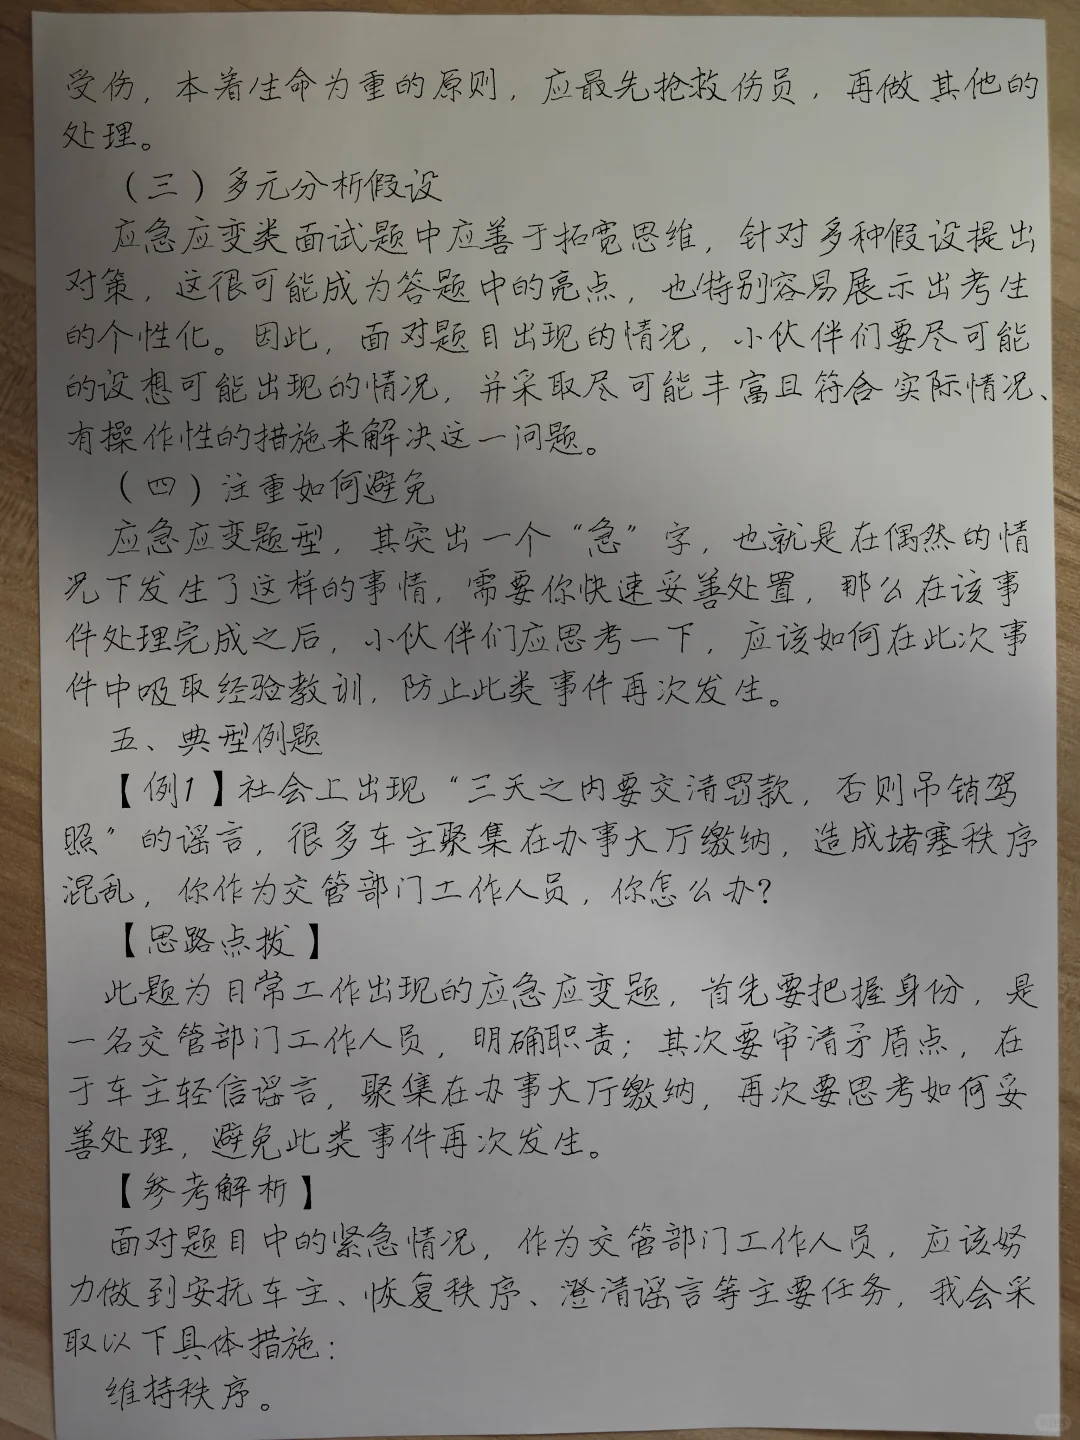 受伤，本着生命为重的原则，应最先抢救伤员，再做其他的
处理。
（三）多元分析假设
应急应变类面试题中应善于拓宽思维，针对多种假设提出
对策，这很可能成为答题中的亮点，也特别容易展示出考生
的个性化。因此，面对题目出现的情况，小伙伴们要尽可能
的设想可能出现的情况，并采取尽可能丰富且符合实际情况、
有操作性的措施来解决这一问题。
（四）注重如何避免
应急应变题型，其突出一个“急”字，也就是在偶然的情
况下发生了这样的事情，需要你快速妥善处置，那么在该事
件处理完成之后，小伙伴们应思考一下，应该如何在此次事
件中吸取经验教训，防止此类事件再次发生。
五、典型例题
【例1】社会上出现“三天之内要交清罚款，否则吊销驾
照”的谣言，很多车主聚集在办事大厅缴纳，造成堵塞秩序
混乱，你作为交管部门工作人员，你怎么办？
【思路点拨】
此题为日常工作出现的应急应变题，首先要把握身份，是
一名交管部门工作人员，明确职责；其次要审清矛盾点，在
于车主轻信谣言，聚集在办事大厅缴纳，再次要思考如何妥
善处理，避免此类事件再次发生。
【参考解析】
面对题目中的紧急情况，作为交管部门工作人员，应该努
力做到安抚车主、恢复秩序、澄清谣言等主要任务，我会采
取以下具体措施：
维持秩序。